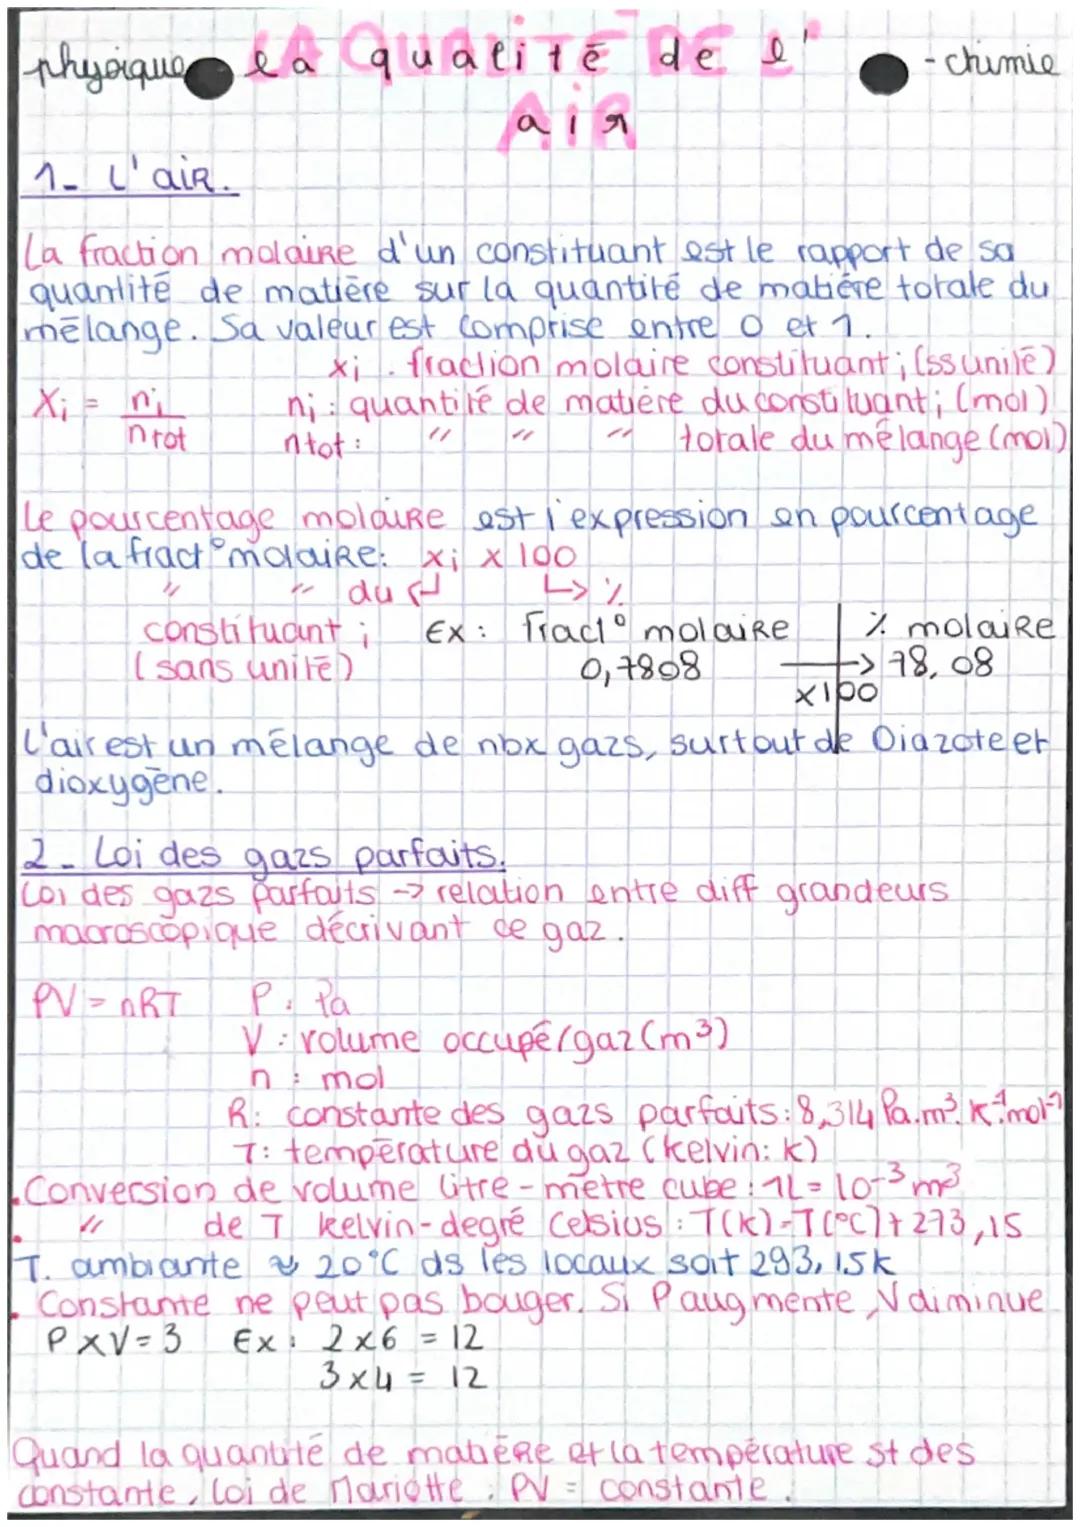 physique la qualité de l' - chimie
LA QUALITÉ DE
air
AIR
1- L'air.
La fraction molaire d'un constituant est le rapport de sa
quantité de matière sur la quantité de matière totale du
mélange. Sa valeur est comprise entre 0 et 1.
xi : fraction molaire constituant i (ss unité)
Xi = ni / ntot
ni : quantité de matière du constituant i (mol)
ntot : " " " totale du mélange (mol)
Le pourcentage molaire est l'expression en pourcentage
de la fract° molaire: xi x 100
" " du ↵ ↳ %
constituant i Ex : Fract° molaire % molaire
(sans unité) 0,7808 → 78,08
x100
L'air est un mélange de nbx gazs, surtout de Diazote et
dioxygène.
2- Loi des gazs parfaits.
Loi des gazs parfaits → relation entre diff grandeurs
macroscopique décrivant ce gaz.
PV = nRT P : Pa
V : volume occupé/gaz (m³)
n : mol
R: constante des gazs parfaits: 8,314 Pa.m³.K⁻¹.mol⁻¹
T: température du gaz (kelvin: K)
. Conversion de volume litre - mètre cube : 1L = 10⁻³ m³
. " de T kelvin-degré Celsius : T(K)=T(°C)+273,15
T. ambiante ≈ 20°C ds les locaux soit 293,15K
. Constante ne peut pas bouger. Si P augmente, V diminue
P x V = 3 Ex : 2 x 6 = 12
3 x 4 = 12
Quand la quantité de matière et la température st des
constante, loi de Mariotte : PV = constante.